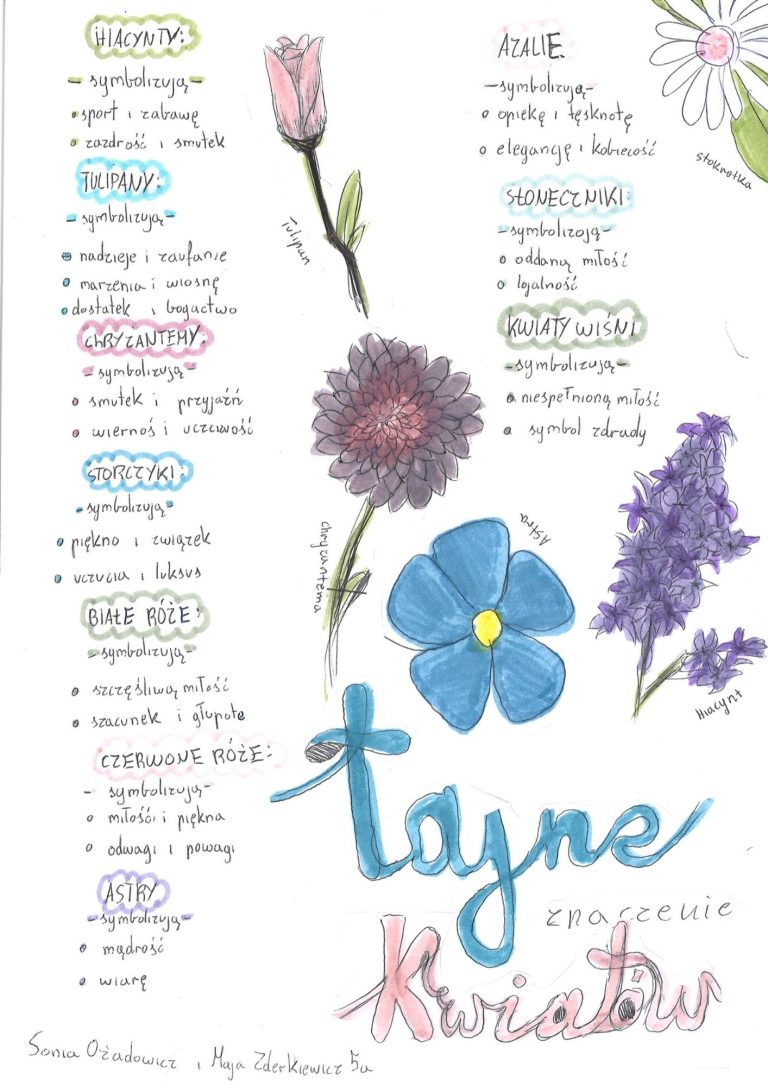 HIACYNTY:
- symbolizują -
sport i zabawę
zazdrość i smutek
TULIPANY:
- symbolizują -
nadzieje i zaufanie
marzenia i wiosnę
dostatek i bogactwo
CHRYZANTEMY:
- symbolizują -
smutek i przyjaźń
wiernoś i uczciwość
STORCZYKI:
- symbolizują -
piękno i związek
uczucia i luksus
BIAŁE RÓŻE:
- symbolizują -
szczęśliwą miłość
szacunek i głupotę
CZERWONE RÓŻE:
- symbolizują -
miłości i piękna
odwagi i powagi
ASTRY
- symbolizują -
mądrość
wiarę
Tulipan
chryzantema
AZALIE:
- symbolizują -
opiekę i tęsknotę
elegancję i kobiecość
SŁONECZNIKI:
- symbolizoją -
oddaną miłość
lojalność
KWIATY WIŚNI
- symbolizują -
niespełnioną miłość
symbol zdrady
stokrotka
Astra
Hiacynt
tajne
znaczenie
Kwiatów
Sonia Ożadowicz i Maja Zderkiewicz 5a